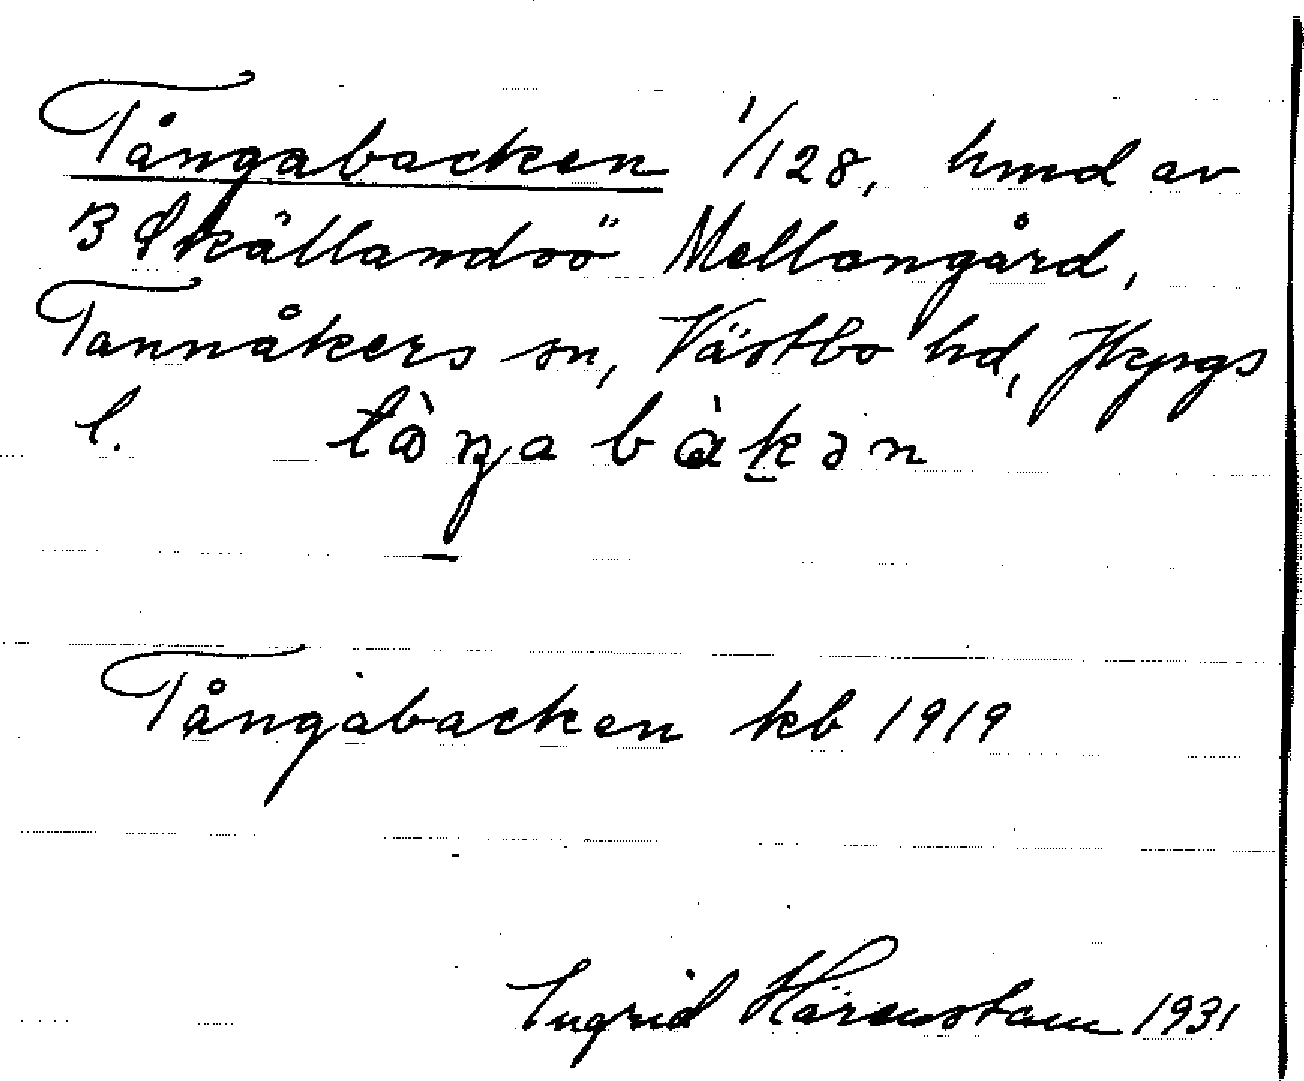 Tångabacken 1/128, hmd av
B Skällandsö Mellangård,
Tannåkers sn, Västbo hd, Jkpgs
l. tàŋabàkən
Tångabacken kb 1919
Ingrid Härenstam 1931